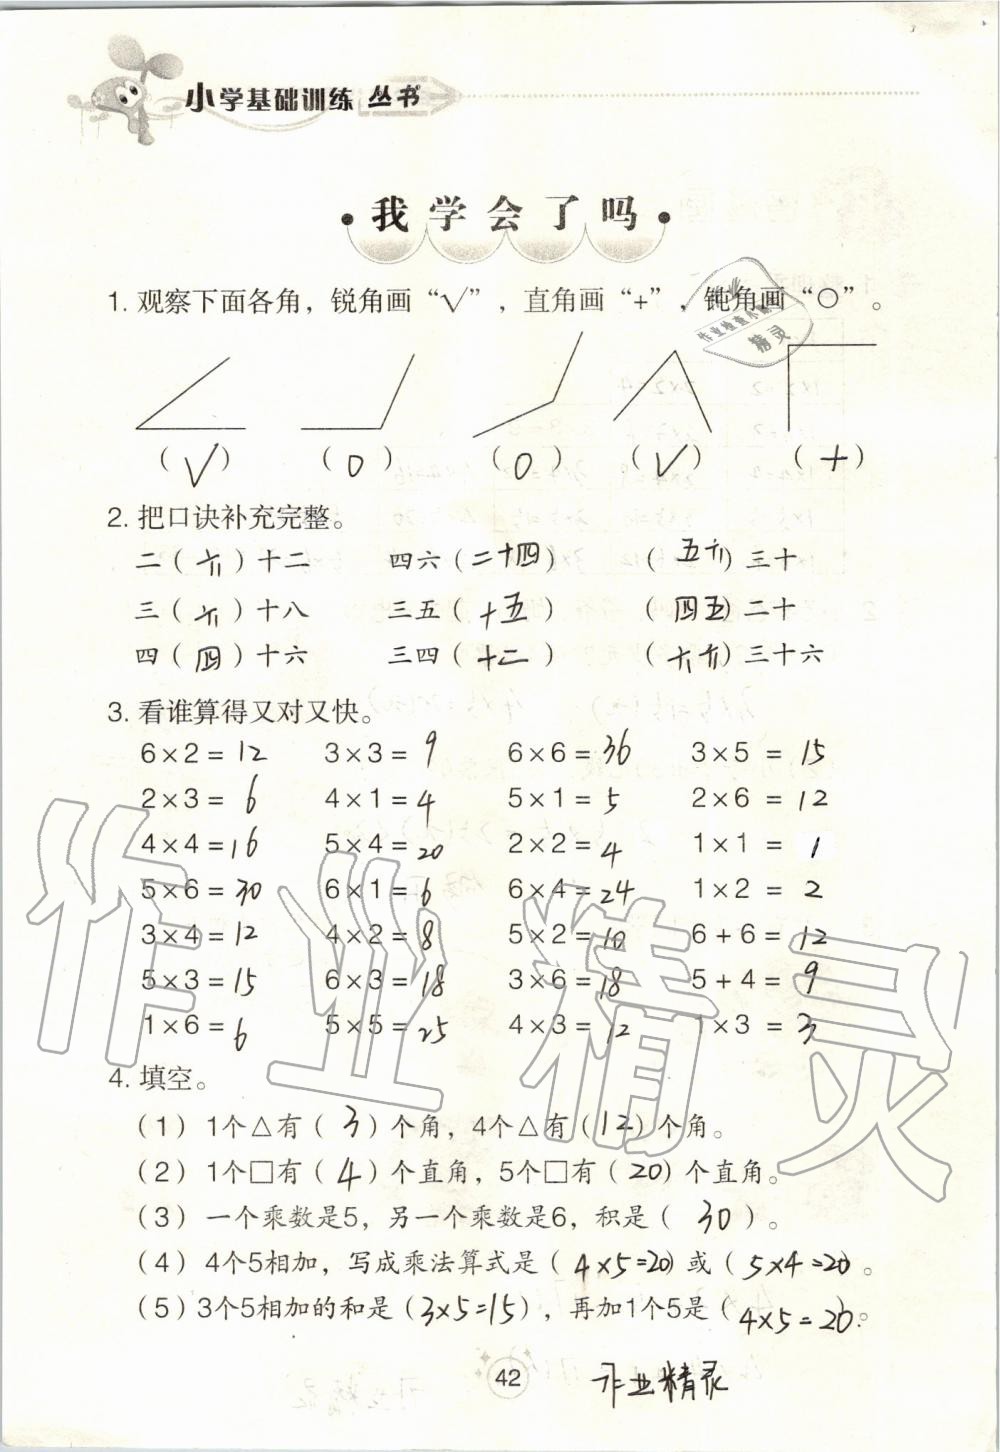 小学基础训练 丛书
·我学会了吗·
1. 观察下面各角，锐角画“√”，直角画“+”，钝角画“○”。
(√) (○) (○) (√) (+)
2. 把口诀补充完整。
二(六)十二 四六(二十四) (五六)三十
三(六)十八 三五(十五) (四五)二十
四(四)十六 三四(十二) (六六)三十六
3. 看谁算得又对又快。
6×2=12 3×3=9 6×6=36 3×5=15
2×3=6 4×1=4 5×1=5 2×6=12
4×4=16 5×4=20 2×2=4 1×1=1
5×6=30 6×1=6 6×4=24 1×2=2
3×4=12 4×2=8 5×2=10 6+6=12
5×3=15 6×3=18 3×6=18 5+4=9
1×6=6 5×5=25 4×3=12 1×3=3
4. 填空。
(1) 1个△有(3)个角，4个△有(12)个角。
(2) 1个□有(4)个直角，5个□有(20)个直角。
(3) 一个乘数是5，另一个乘数是6，积是(30)。
(4) 4个5相加，写成乘法算式是(4×5=20)或(5×4=20)。
(5) 3个5相加的和是(3×5=15)，再加1个5是(4×5=20)。
42
作业精灵
作业精灵
作业检查小助手
精灵